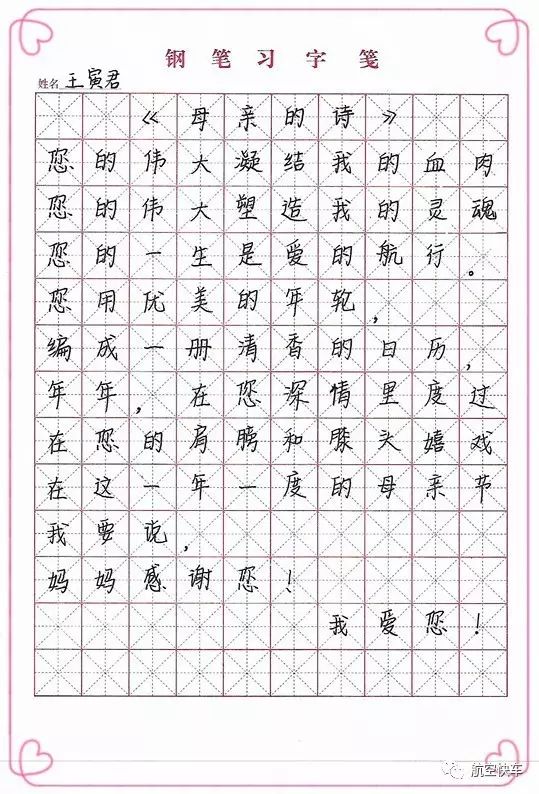 钢笔习字笺
姓名 王寅君
《母亲的诗》
您的伟大凝结我的血肉
您的伟大塑造我的灵魂
您的一生是爱的航行。
您用优美的年轮,
编成一册清香的日历,
年年,在您深情里度过
在您的肩膀和膝头嬉戏
在这一年一度的母亲节
我要说,
妈妈感谢您!
我爱您!
航空快车